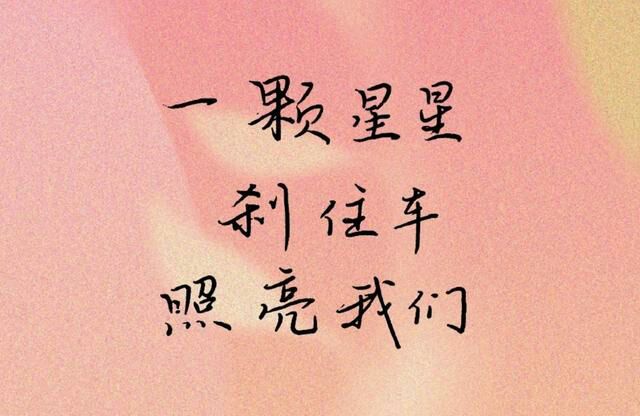 一颗星星
刹住车
照亮我们